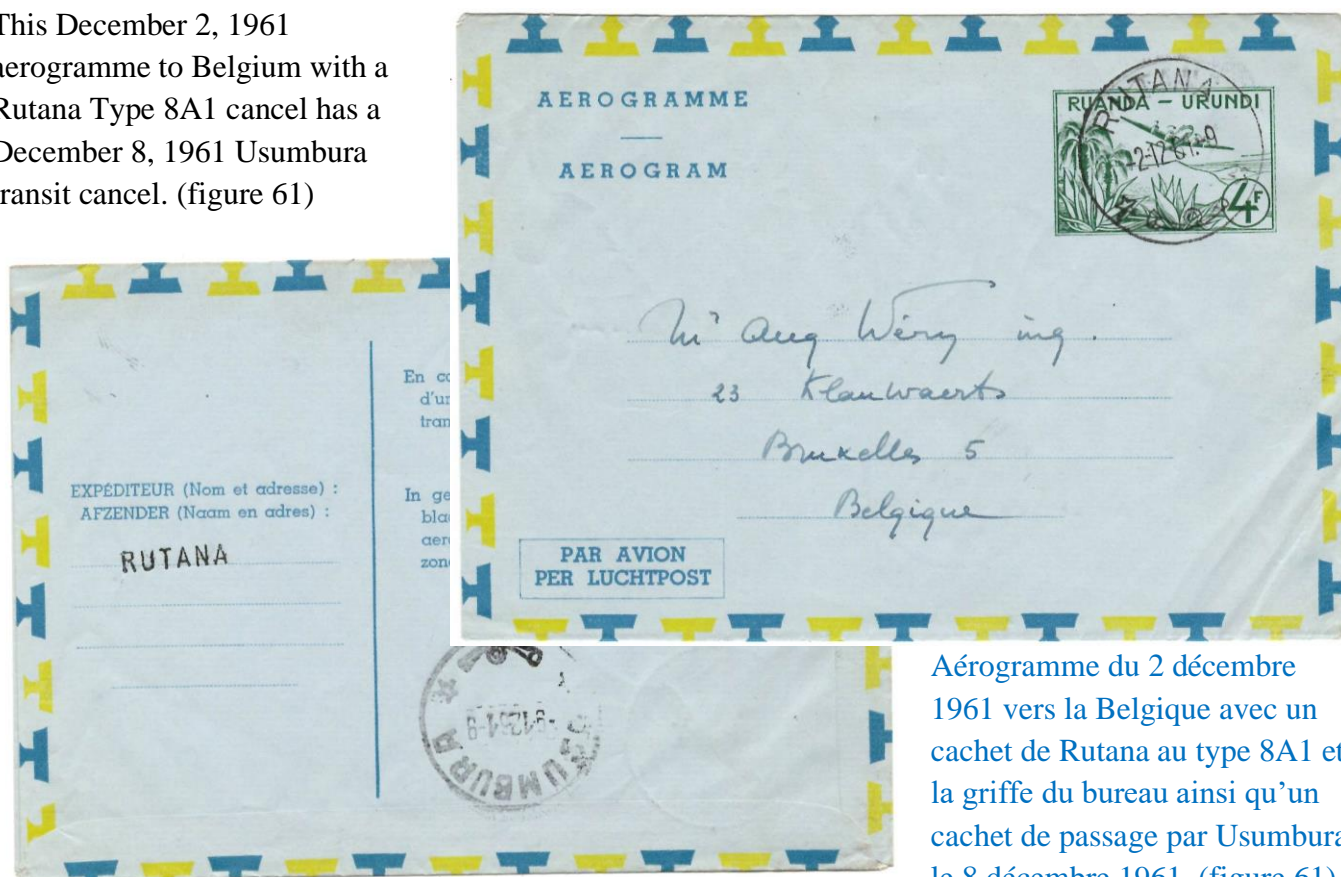 This December 2, 1961
aerogramme to Belgium with a
Rutana Type 8A1 cancel has a
December 8, 1961 Usumbura
transit cancel. (figure 61)
AEROGRAMME
AEROGRAM
RUANDA – URUNDI
4F
RUTANA
-2-12-61-9
Mr Aug Wéry ing.
23 Klauwaerts
Bruxelles 5
Belgique
PAR AVION
PER LUCHTPOST
En co
d'un
tran
In ge
bla
aer
zon
EXPÉDITEUR (Nom et adresse) :
AFZENDER (Naam en adres) :
RUTANA
USUMBURA
Aérogramme du 2 décembre
1961 vers la Belgique avec un
cachet de Rutana au type 8A1 et
la griffe du bureau ainsi qu'un
cachet de passage par Usumbura
le 8 décembre 1961. (figure 61)